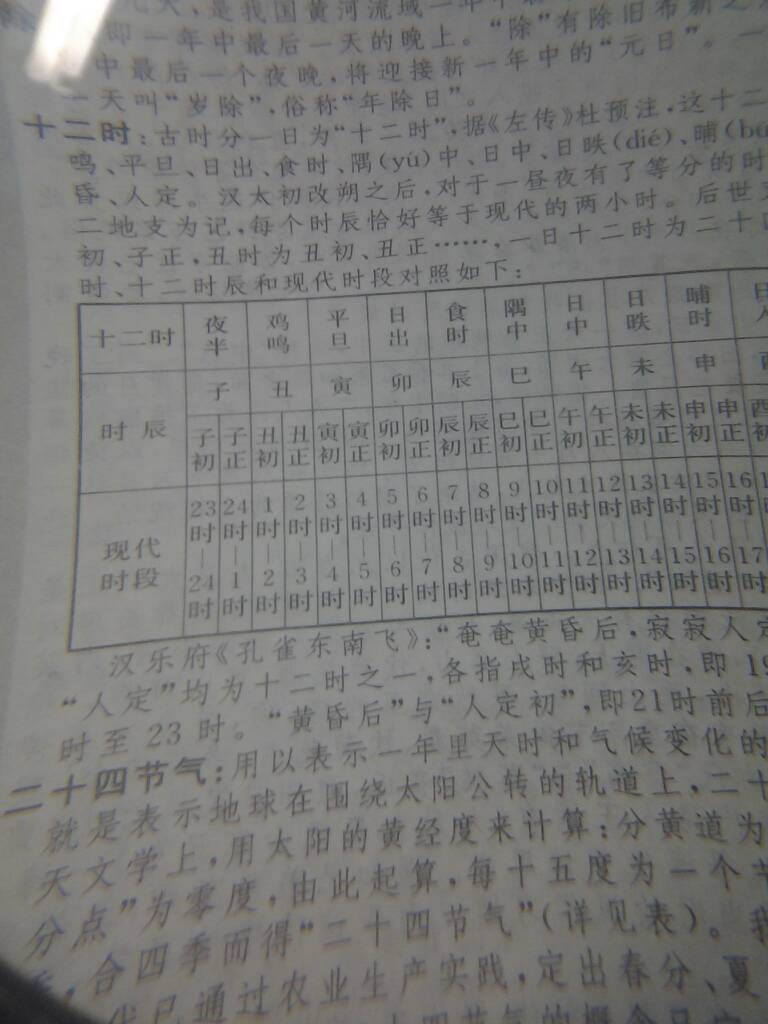 是我国黄河流域一年中
即一年中最后一天的晚上。“除”有除旧布新之
中最后一个夜晚,将迎接新一年中的“元日”。一
一天叫“岁除”,俗称“年除日”。
十二时:古时分一日为“十二时”,据《左传》杜预注,这十二
鸣、平旦、日出、食时、隅(yú)中、日中、日昳(dié)、晡(bū
昏、人定。汉太初改朔之后,对于一昼夜有了等分的时
二地支为记,每个时辰恰好等于现代的两小时。后世又
初、子正,丑时为丑初、丑正……,一日十二时为二十四
时、十二时辰和现代时段对照如下:
十二时 夜半 鸡鸣 平旦 日出 食时 隅中 日中 日昳 晡时 日入
时辰 子 丑 寅 卯 辰 巳 午 未 申 酉
子初 子正 丑初 丑正 寅初 寅正 卯初 卯正 辰初 辰正 巳初 巳正 午初 午正 未初 未正 申初 申正 酉初
现代时段 23时—24时 24时—1时 1时—2时 2时—3时 3时—4时 4时—5时 5时—6时 6时—7时 7时—8时 8时—9时 9时—10时 10时—11时 11时—12时 12时—13时 13时—14时 14时—15时 15时—16时 16时—17时
汉乐府《孔雀东南飞》:“奄奄黄昏后,寂寂人定
“人定”均为十二时之一,各指戌时和亥时,即19
时至23时。“黄昏后”与“人定初”,即21时前后
二十四节气:用以表示一年里天时和气候变化的
就是表示地球在围绕太阳公转的轨道上,二十
天文学上,用太阳的黄经度来计算:分黄道为
分点”为零度,由此起算,每十五度为一个节
合四季而得“二十四节气”(详见表)。我
代已通过农业生产实践,定出春分、夏
十四节气的概念